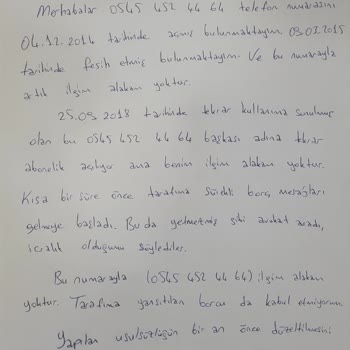 Merhabalar 0545 452 44 64 telefon numarasını
04.12.2014 tarihinde açmış bulunmaktayım 03.03.2015
tarihinde fesih etmiş bulunmaktayım. Ve bu numarayla
artık ilgim alakam yoktur.
25.09.2018 tarihinde tekrar kullanıma sunulmuş
olan bu 0545 452 44 64 başkası adına tekrar
abonelik açılıyor ama benim ilgim alakam yoktur.
Kısa bir süre önce tarafıma sürekli borç mesajları
gelmeye başladı. Bu da yetmezmiş gibi avukat aradı,
icralık olduğumu söylediler.
Bu numarayla (0545 452 44 64) ilgim alakam
yoktur. Tarafıma yansıtılan borcu da kabul etmiyorum
Yapılan usulsüzlüğün bir an önce düzeltilmesini